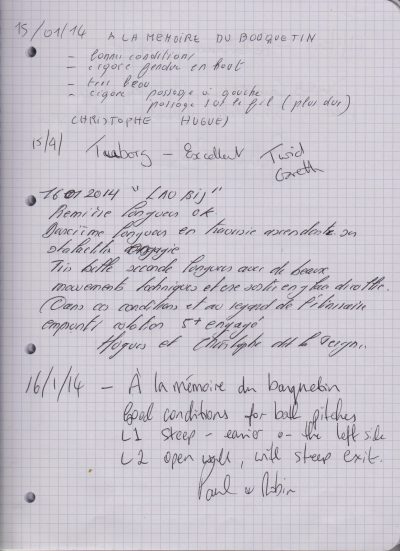 15/01/14 A LA MEMOIRE DU BOUQUETIN
- bonnes conditions
- cigare fendu en haut
- très beau
- cigare passage à gauche
passage sur le fil (plus dur)
CHRISTOPHE HUGUES
15/1/ - Excellent Twid
Gareth
16 01 2014 "LAU BIJ"
Première longueur ok
Deuxième longueur en traversée ascendante sur
stalactites engagée
Très belle seconde longueur avec de beaux
mouvements techniques et une sortie en glace
(Dans ces conditions et au regard de l'itinéraire
emprunté cotation 5+ engagé
Hugues et Christophe
16/1/14 - À la mémoire du bouquetin
Good conditions for both pitches
L1 steep - easier on the left side
L2 open well, with steep exit.
Paul & Robin